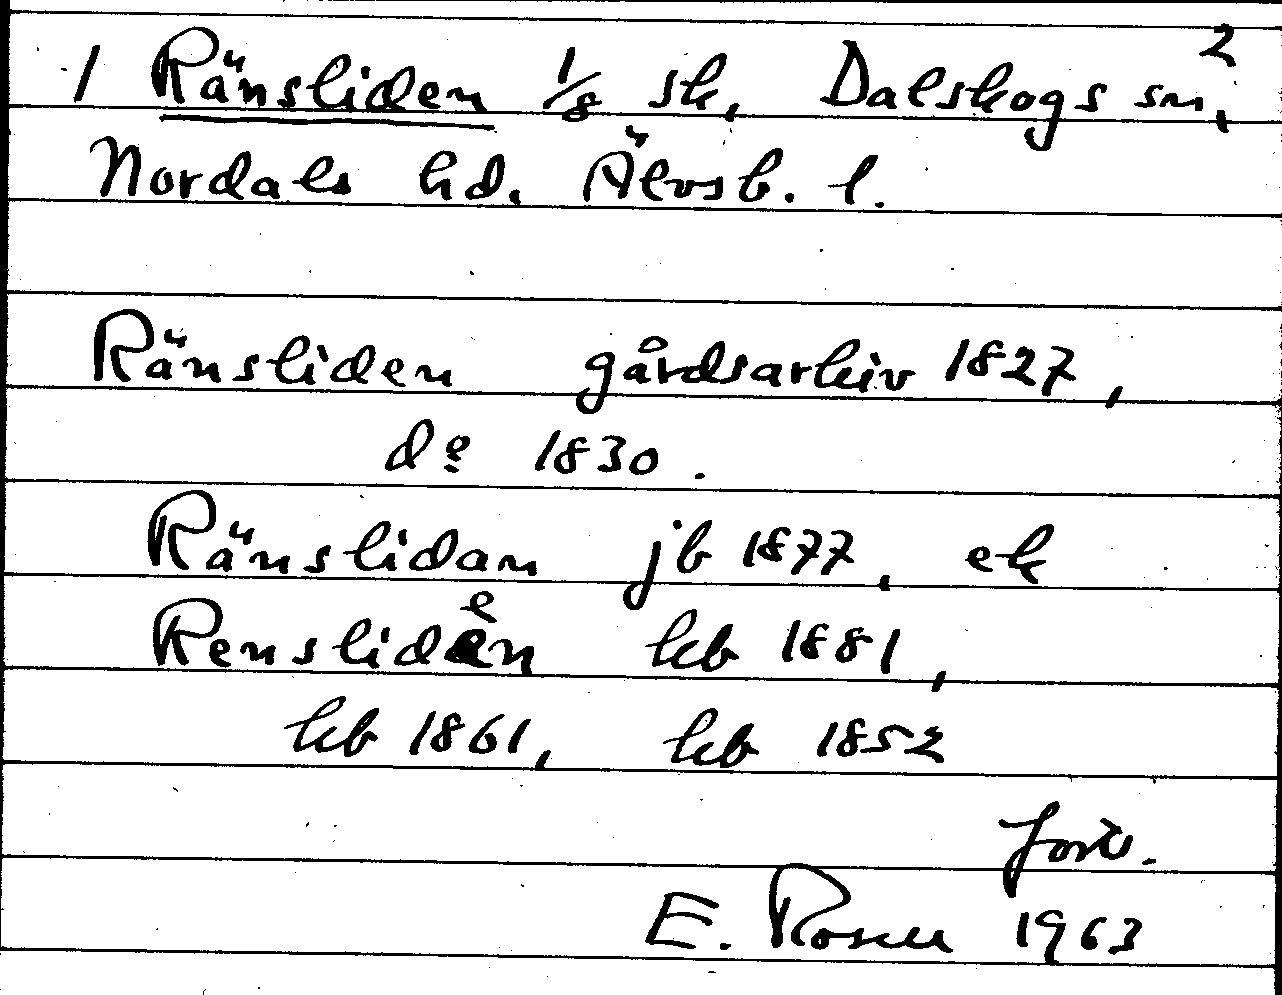 2
1 Ränsliden 1/8 sk, Dalskogs sn,
Nordals hd. Älvsb. l.
Ränsliden gårdsarkiv 1827,
do 1830.
Ränslidan jb 1877, ek
Rensliden kb 1881,
kb 1861, kb 1852
forts.
E. Rosell 1963